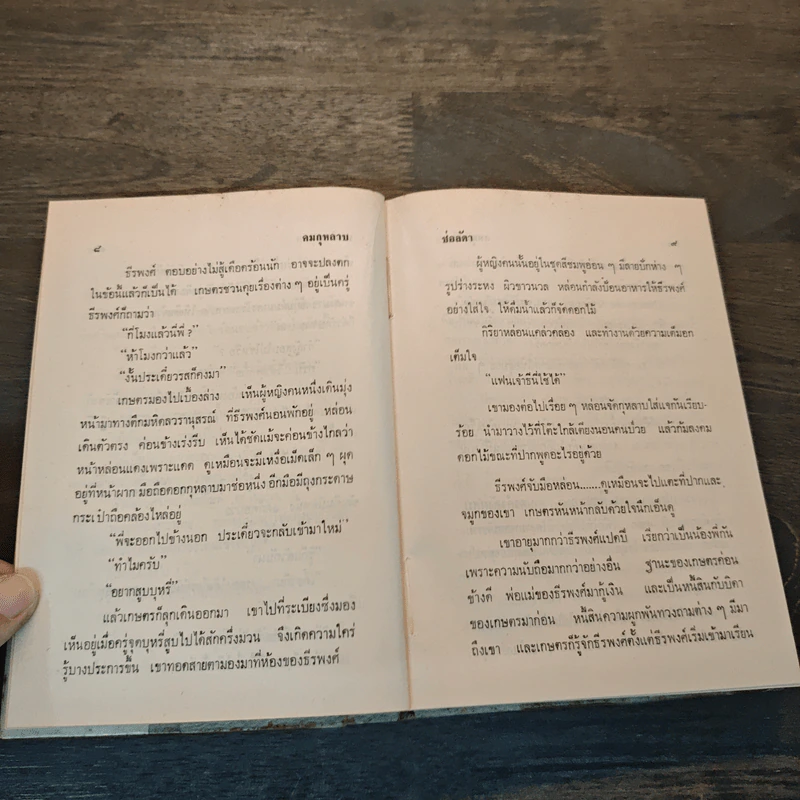 ๘
คมกุหลาบ
ธีรพงศ์ ตอบอย่างไม่สู้เดือดร้อนนัก อาจจะปลงตก
ในข้อนี้แล้วก็เป็นได้ เกษตรชวนคุยเรื่องต่าง ๆ อยู่เป็นครู่
ธีรพงศ์ก็ถามว่า
“กี่โมงแล้วนี่พี่ ?”
“ห้าโมงกว่าแล้ว”
“งั้นประเดี๋ยวรสก็คงมา”
เกษตรมองไปเบื้องล่าง เห็นผู้หญิงคนหนึ่งเดินมุ่ง
หน้ามาทางตึกมหิดลวรานุสรณ์ ที่ธีรพงศ์นอนพักอยู่ หล่อน
เดินตัวตรง ค่อนข้างเร่งรีบ เห็นได้ชัดแม้จะค่อนข้างไกลว่า
หน้าหล่อนแดงเพราะแดด ดูเหมือนจะมีเหงื่อเม็ดเล็ก ๆ ผุด
อยู่ที่หน้าผาก มือถือดอกกุหลาบมาช่อหนึ่ง อีกมือมีถุงกระดาษ
กระเป๋าถือคล้องไหล่อยู่
“พี่จะออกไปข้างนอก ประเดี๋ยวจะกลับเข้ามาใหม่”
“ทำไมครับ”
“อยากสูบบุหรี่”
แล้วเกษตรก็ลุกเดินออกมา เขาไปที่ระเบียงซึ่งมอง
เห็นอยู่เมื่อครู่จุดบุหรี่สูบไปได้สักครึ่งมวน จึงเกิดความใคร่
รู้บางประการขึ้น เขาทอดสายตามองมาที่ห้องของธีรพงศ์
ช่อลัดา
๙
ผู้หญิงคนนั้นอยู่ในชุดสีชมพูอ่อน ๆ มีลายบั๊กห่าง ๆ
รูปร่างระหง ผิวขาวนวล หล่อนกำลังป้อนอาหารให้ธีรพงศ์
อย่างใส่ใจ ให้ดื่มน้ำแล้วก็จัดดอกไม้
กิริยาหล่อนแคล่วคล่อง และทำงานด้วยความเต็มอก
เต็มใจ
“แฟนเจ้าธีนี่ใช้ได้”
เขามองต่อไปเรื่อย ๆ หล่อนจัดกุหลาบใส่แจกันเรียบ-
ร้อย นำมาวางไว้ที่โต๊ะใกล้เตียงนอนคนป่วย แล้วก้มลงดม
ดอกไม้ขณะที่ปากพูดอะไรอยู่ด้วย
ธีรพงศ์จับมือหล่อน.......ดูเหมือนจะไปแตะที่ปากและ
จมูกของเขา เกษตรหันหน้ากลับด้วยใจนึกเอ็นดู
เขาอายุมากกว่าธีรพงศ์แปดปี เรียกว่าเป็นน้องพี่กัน
เพราะความนับถือมากกว่าอย่างอื่น ฐานะของเกษตรค่อน
ข้างดี พ่อแม่ของธีรพงศ์มากู้เงิน และเป็นหนี้สินกับบิดา
ของเกษตรมาก่อน หนี้สินความผูกพันทวงถามต่าง ๆ มีมา
ถึงเขา และเกษตรก็รู้จักธีรพงศ์ตั้งแต่ธีรพงศ์เริ่มเข้ามาเรียน